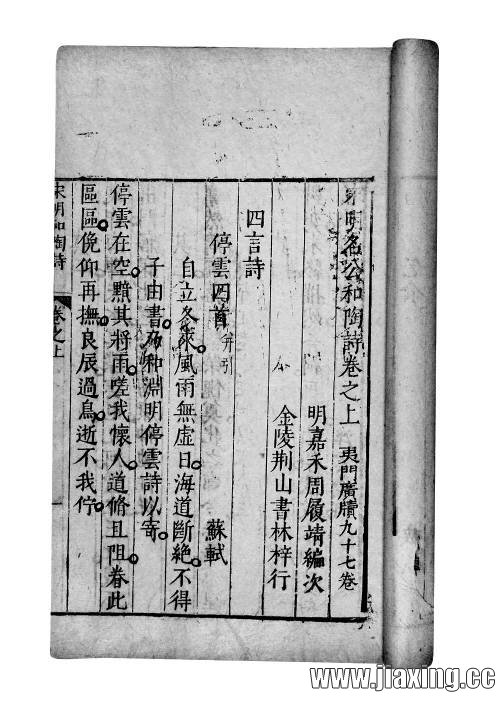 宋明名公和陶詩卷之上 夷門廣牘九十七卷
明嘉禾周履靖編次
金陵荆山書林梓行
四言詩
停雲四首 并引 蘇軾
自立冬來風雨無虛日海道斷絶不得
子由書乃和淵明停雲詩以寄
停雲在空黯其將雨嗟我懷人道脩且阻眷此
區區俛仰再撫良辰過鳥逝不我佇
宋明和陶詩 卷之上
www.jiaxing.cc